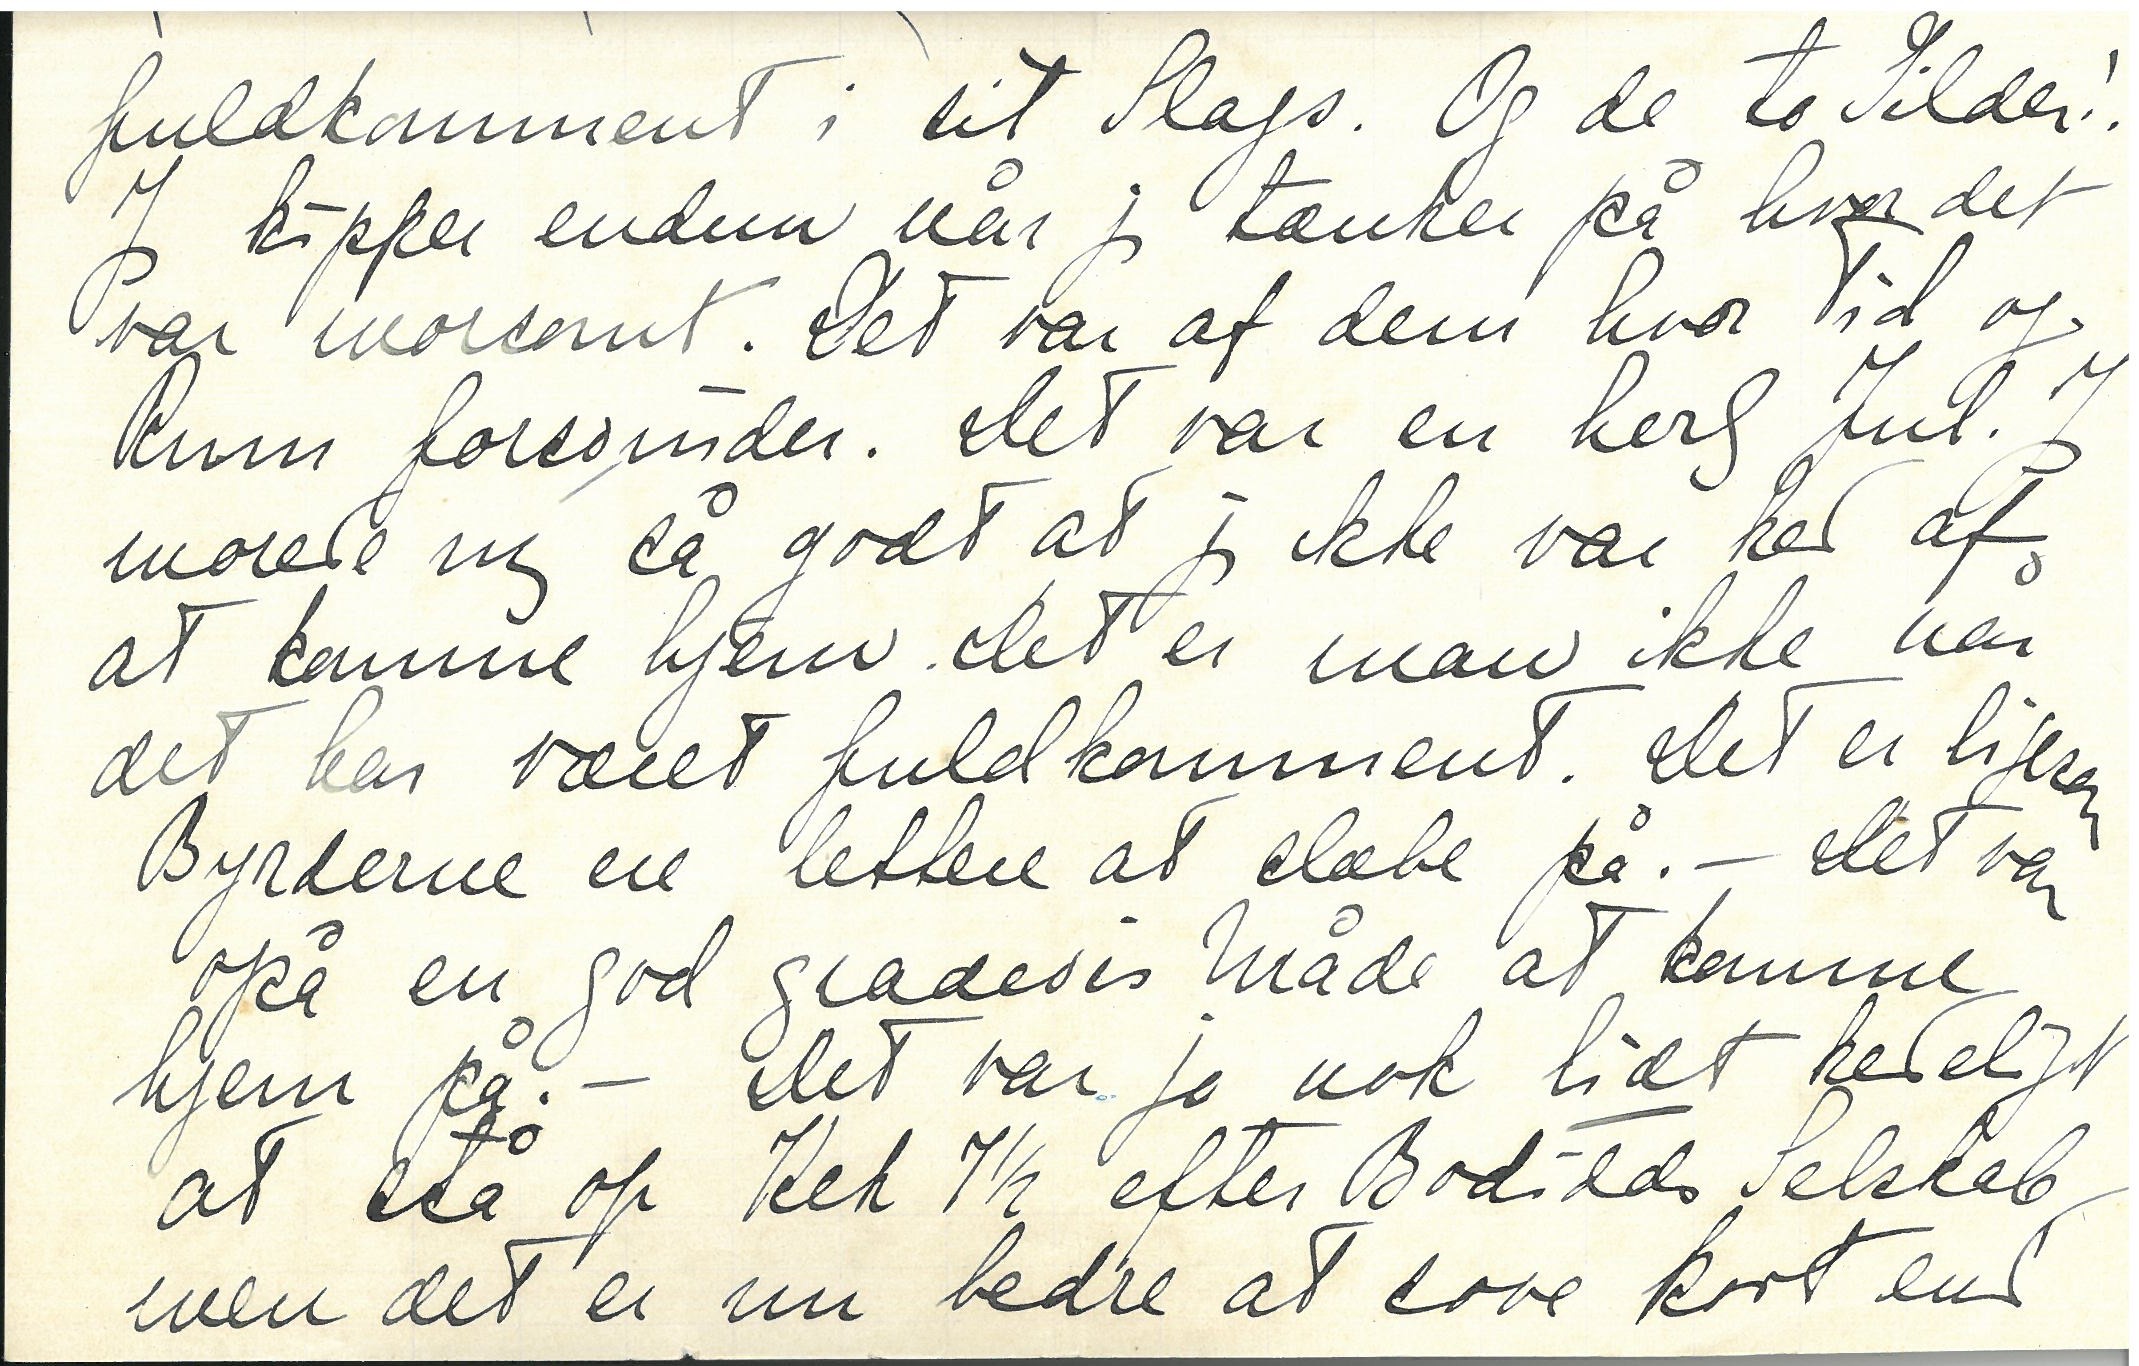 fuldkomment i sit Slags. Og de to Silder!.
J kipper endnu når j tænker på hvor det
var morsomt. Det var af dem hvor Tid og
Rum forsvinder. Det var en herlig Jul. J
morede mig så godt at j ikke var ked af
at komme hjem. Det er man ikke når
det har været fuldkomment. Det er ligesom
Byrderne er lettere at slæbe på. – Det var
også en god gradevis Måde at komme
hjem på. – Det var jo nok lidt kedeligt
at stå op Kl. 7½ efter Bodilds Selskab
men det er nu bedre at sove kort end